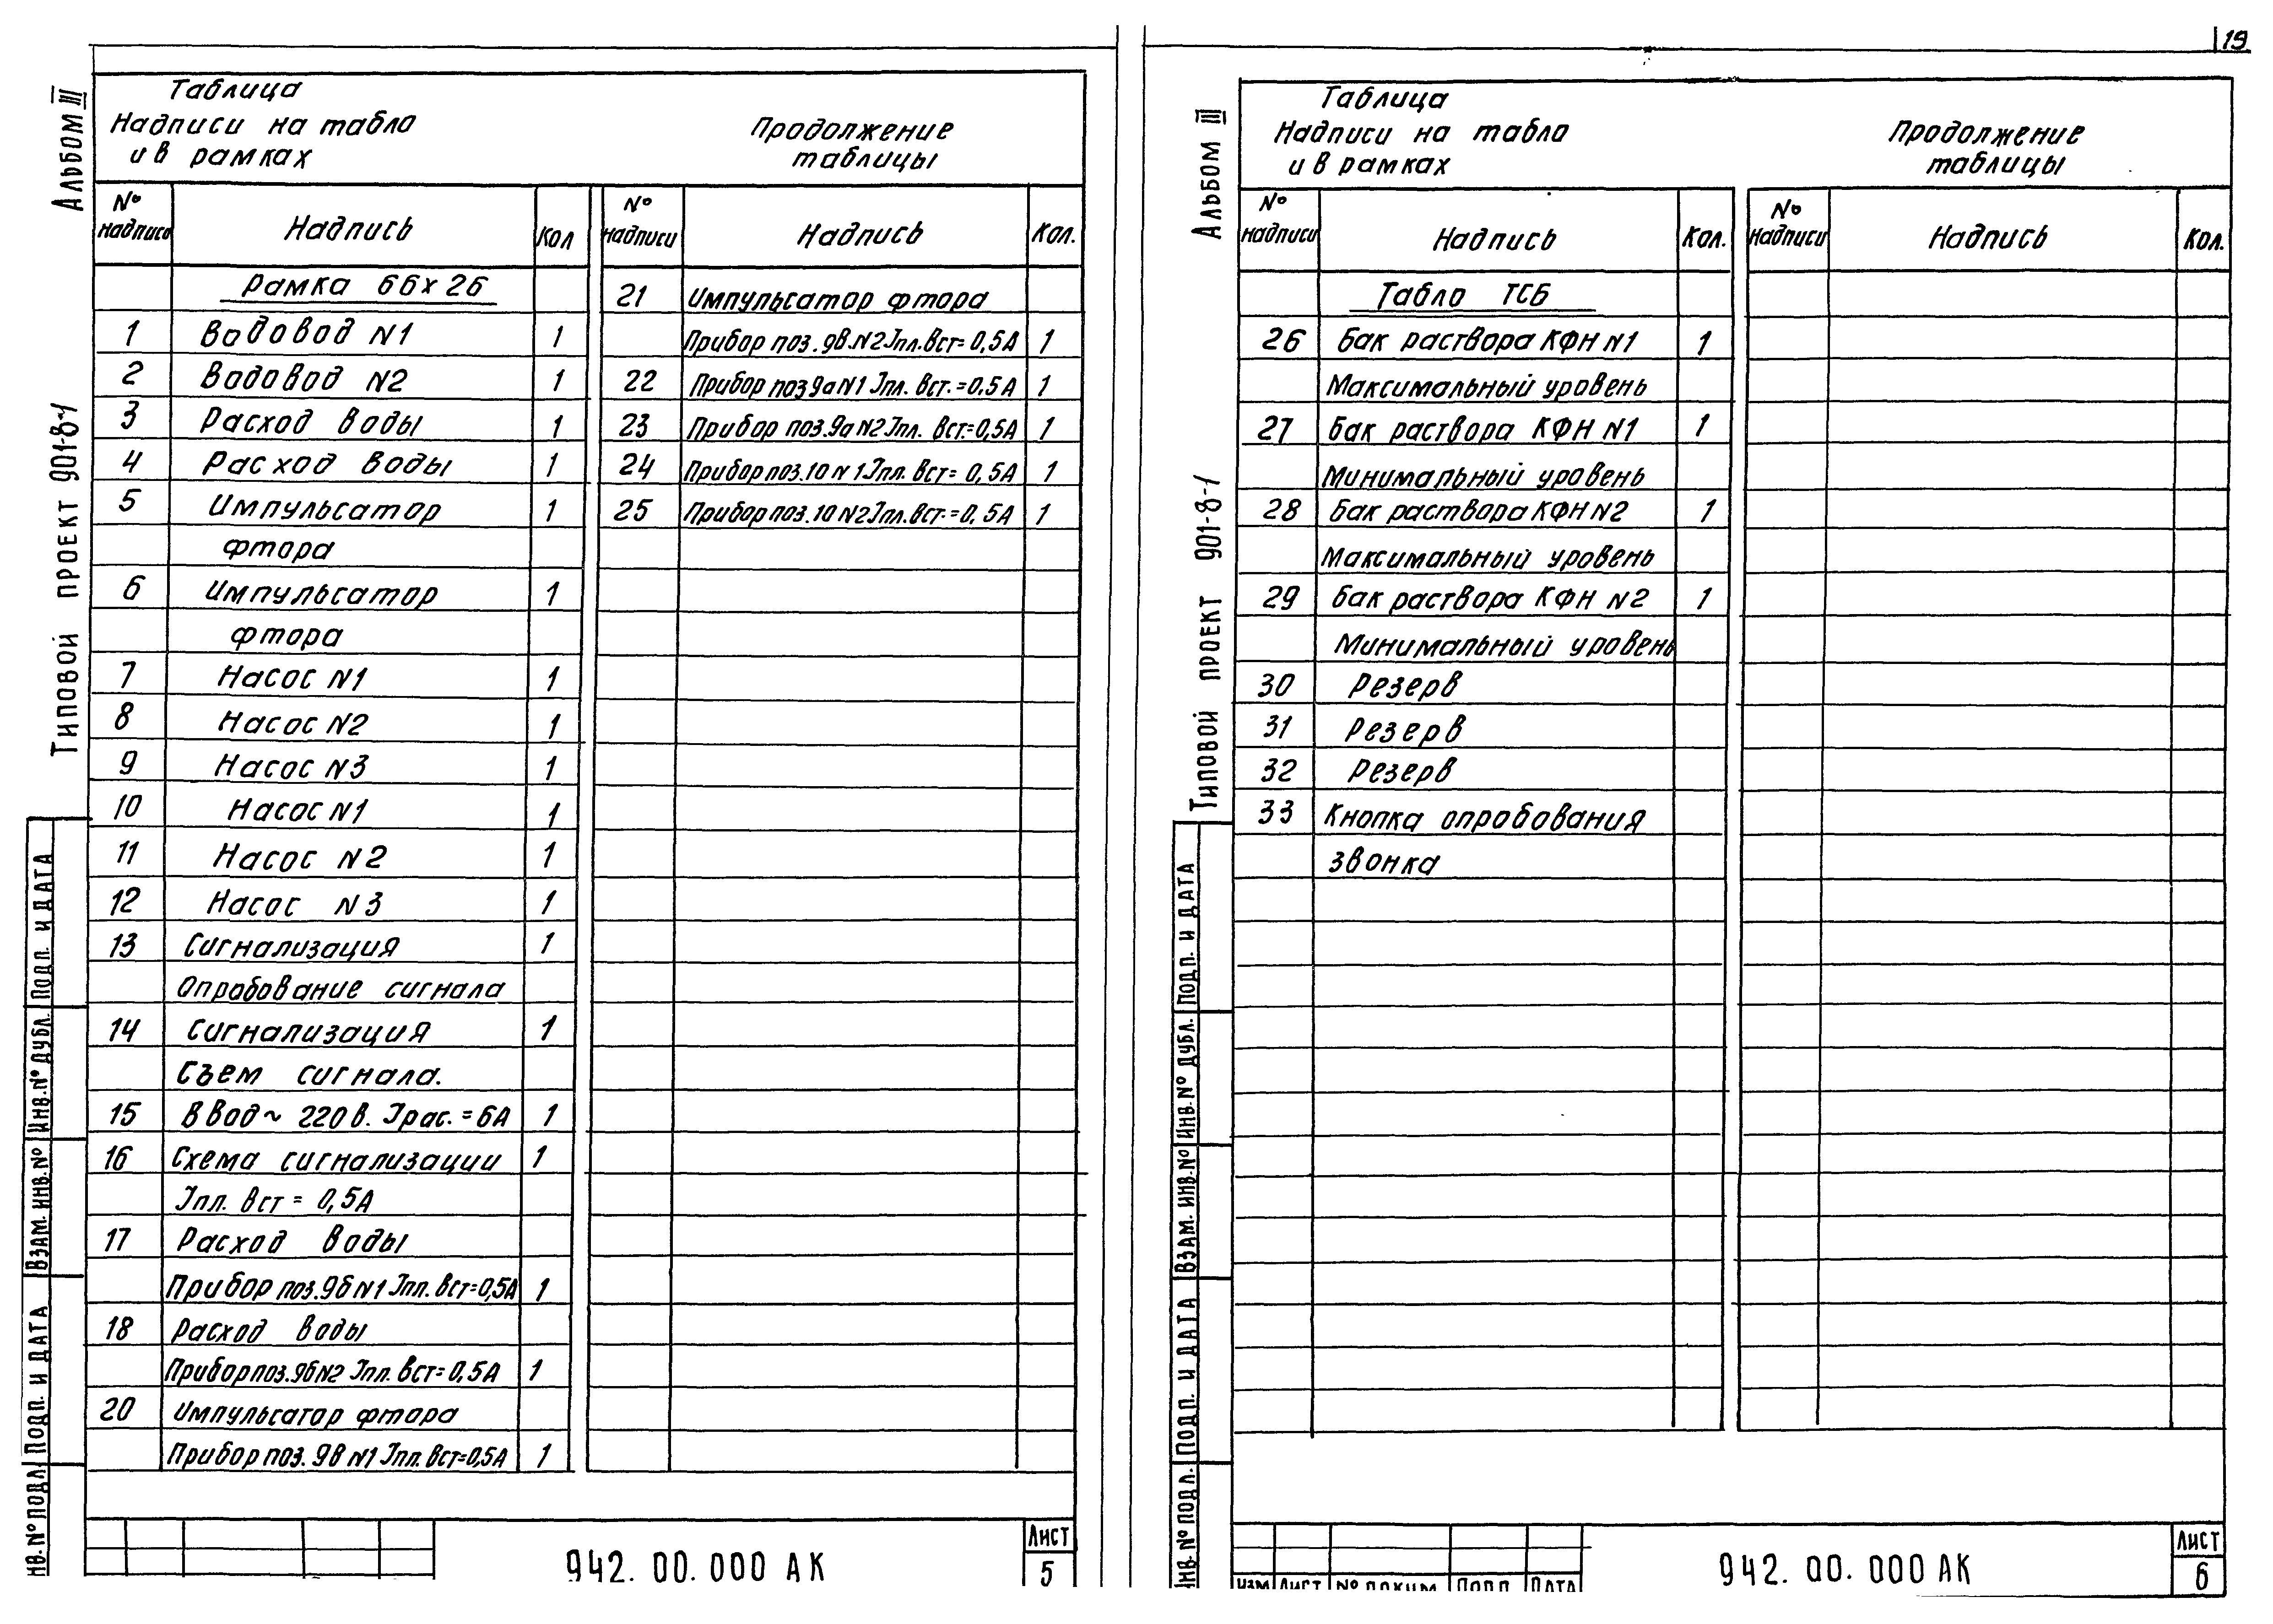 19
Альбом III
Типовой проект 901-8-1
Таблица
Надписи на табло
и в рамках
Продолжение
таблицы
№ надписи Надпись Кол
Рамка 66х26
1 Водовод N1 1
2 Водовод N2 1
3 Расход воды 1
4 Расход воды 1
5 Импульсатор 1
фтора
6 Импульсатор 1
фтора
7 Насос N1 1
8 Насос N2 1
9 Насос N3 1
10 Насос N1 1
11 Насос N2 1
12 Насос N3 1
13 Сигнализация 1
Опробование сигнала
14 Сигнализация 1
Съем сигнала.
15 Ввод ~ 220в. Jрас. = 6А 1
16 Схема сигнализации 1
Jпл. вст = 0,5А
17 Расход воды
Прибор поз.9б N1 Jпл. вст=0,5А 1
18 Расход воды
Прибор поз.9б N2 Jпл. вст=0,5А 1
20 Импульсатор фтора
Прибор поз. 9в N1 Jпл. вст=0,5А 1
№ надписи Надпись Кол.
21 Импульсатор фтора
Прибор поз. 9в. N2 Jпл. вст= 0,5А 1
22 Прибор поз 9а N1 Jпл. вст. = 0,5А 1
23 Прибор поз.9а N2 Jпл. вст.=0,5А 1
24 Прибор поз.10 N 1 Jпл. вст= 0,5А 1
25 Прибор поз.10 N2 Jпл. вст.= 0,5А 1
Подп. и дата
Инв. № дубл.
Взам. инв. №
Подп. и дата
нв. № подл
942. 00. 000 АК
Лист
5
Альбом III
Типовой проект 901-8-1
Таблица
Надписи на табло
и в рамках
Продолжение
таблицы
№ надписи Надпись Кол.
Табло ТСБ
26 Бак раствора КФН N1 1
Максимальный уровень
27 Бак раствора КФН N1 1
Минимальный уровень
28 Бак раствора КФН N2 1
Максимальный уровень
29 Бак раствора КФН N2 1
Минимальный уровень
30 Резерв
31 Резерв
32 Резерв
33 Кнопка опробования
звонка
№ надписи Надпись Кол.
Подп. и дата
Инв. № дубл.
Взам. инв. №
Подп. и дата
Инв. № подл.
Изм Лист № докум. Подп Дата
942. 00. 000 АК
Лист
6